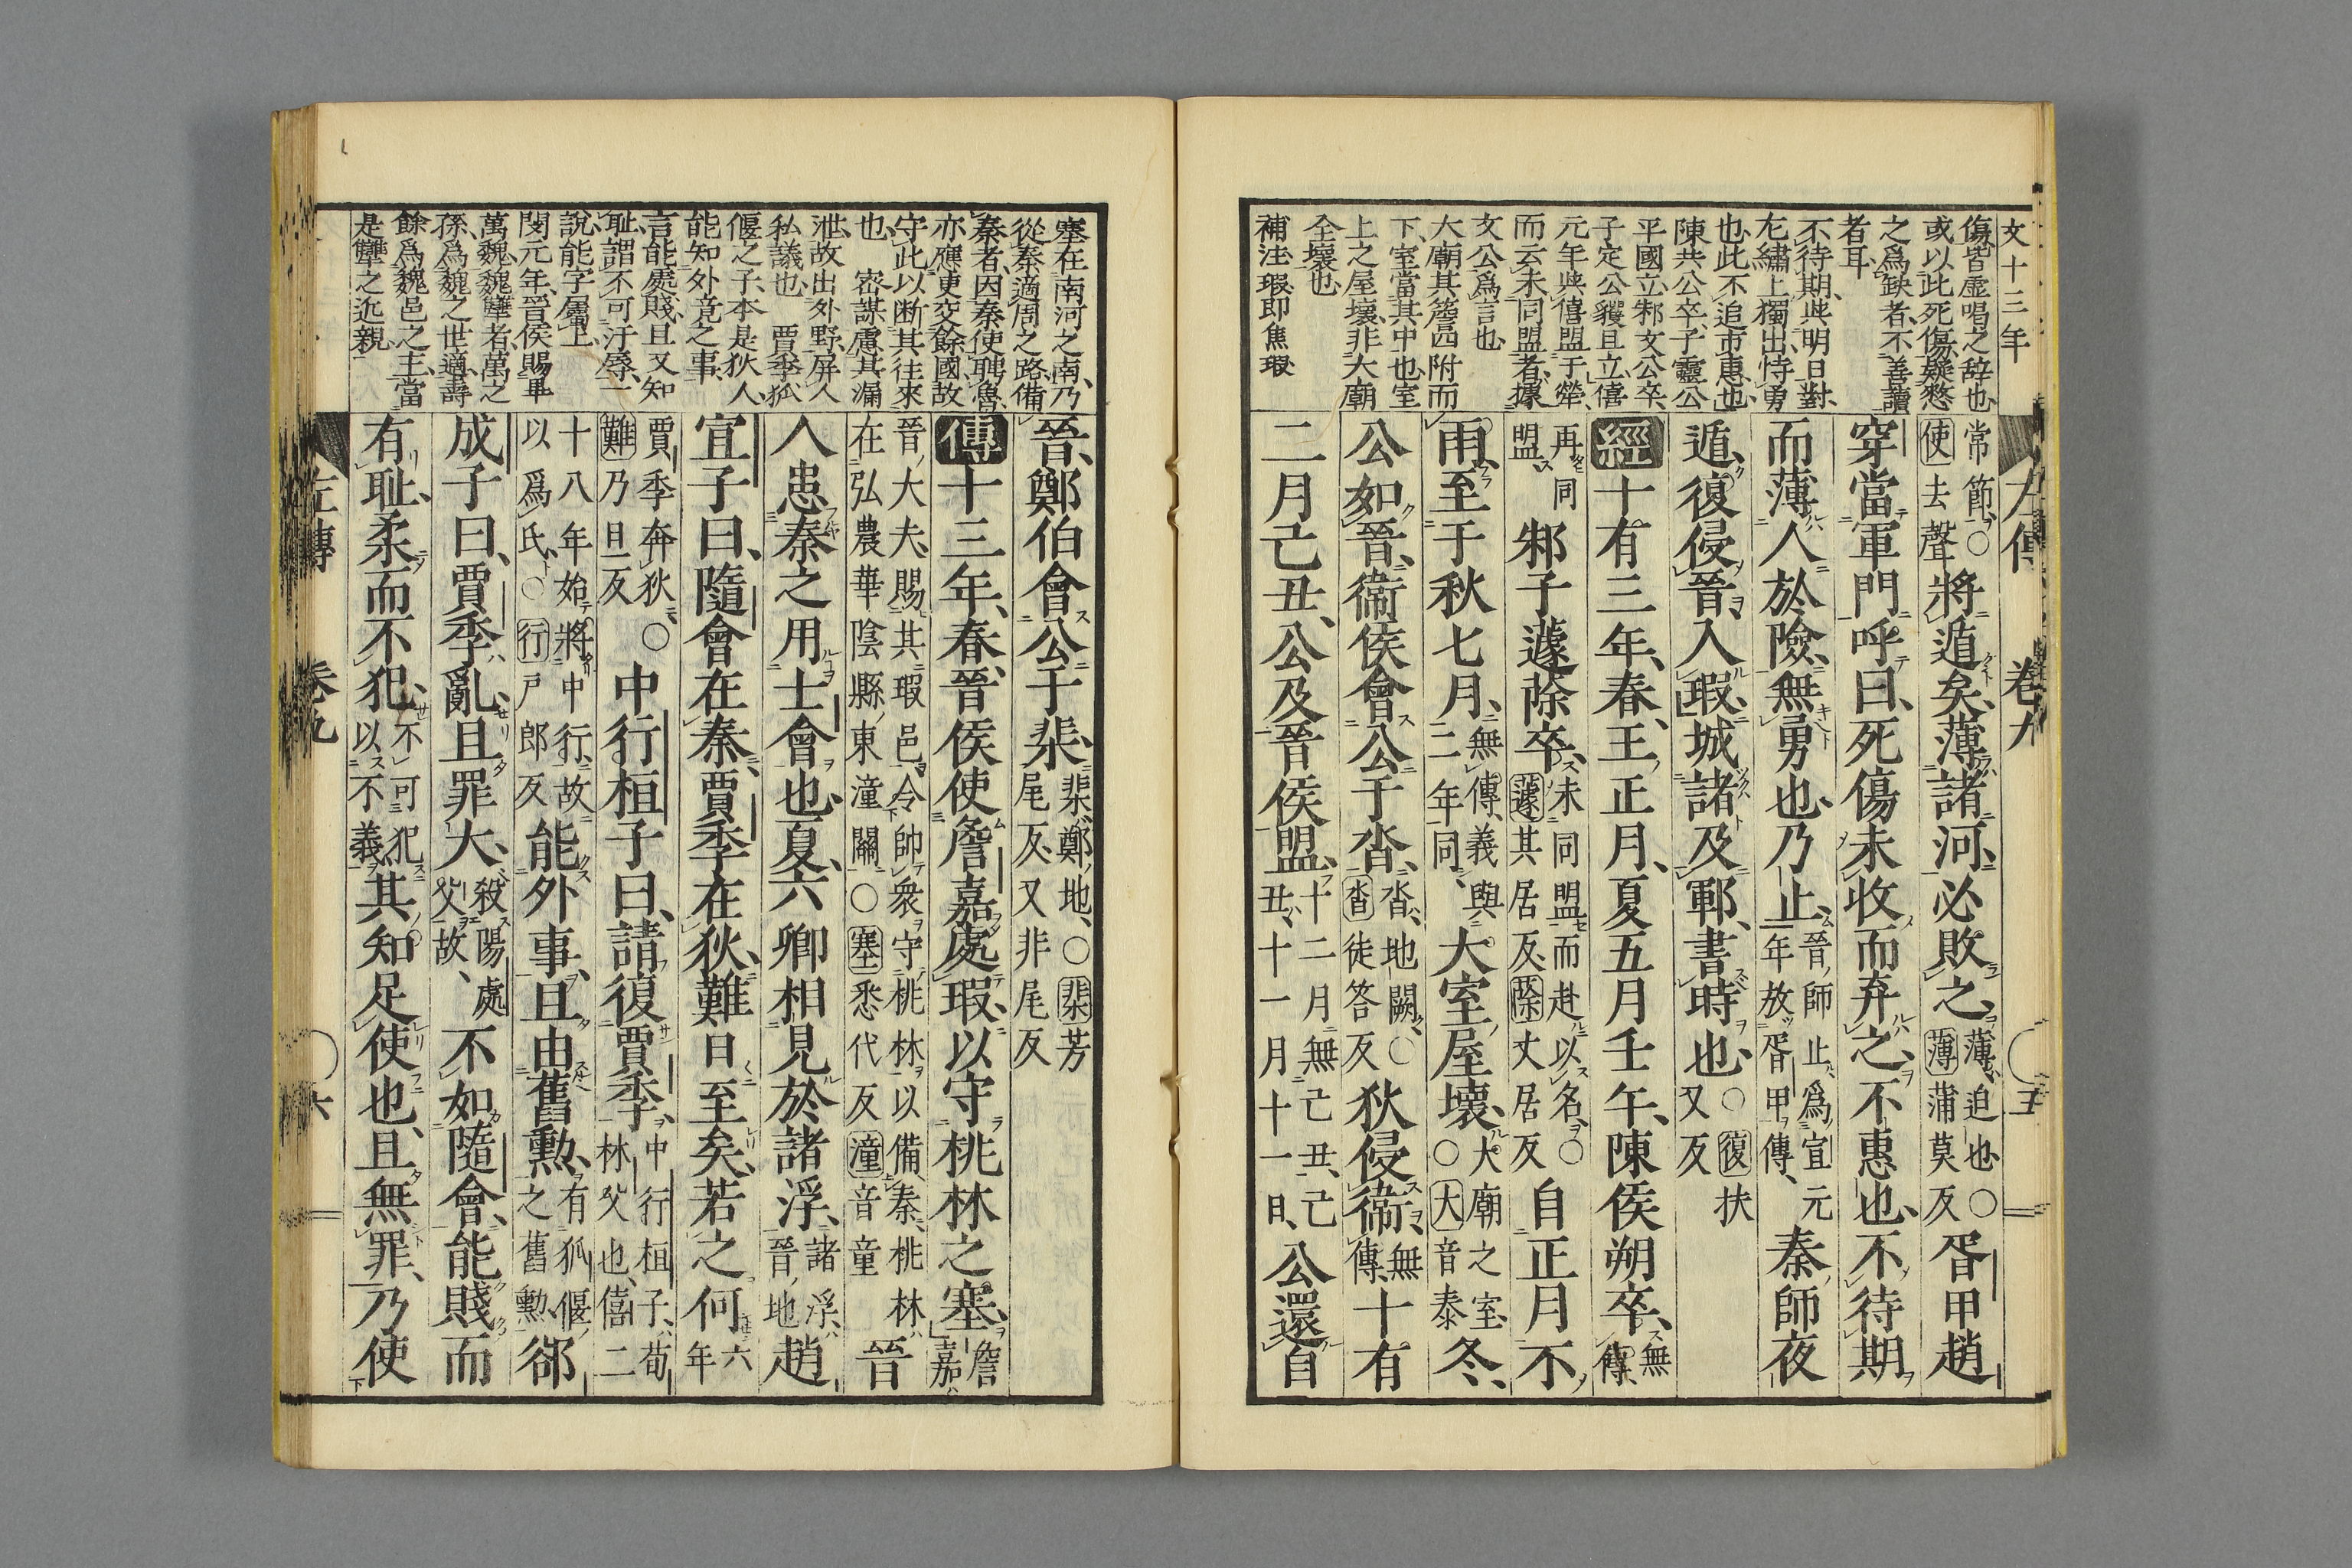 文十三年
左傳 卷九 五
傷皆虛唱之辞也
或以此死傷疑憖
之爲缺者不善讀
者耳
不待期與明日對
左繡上獨出恃勇
也此不追市惠也
陳共公卒子靈公
平國立邾文公卒
子定公貜且立僖
元年與僖盟于犖
而云未同盟者據
文公爲言也
大廟其簷四附而
下室當其中也室
上之屋壞非大廟
全壞也
補注瑕即焦瑕
常節○使去聲將遁矣薄諸河必敗之薄迫也○薄蒲莫反胥甲趙
穿當軍門呼曰死傷未收而弃之不惠也不待期
而薄人於險無勇也乃止晉師止爲宣元年放胥甲傳秦師夜
遁復侵晉入瑕城諸及鄆書時也○復扶又反
經十有三年春王正月夏五月壬午陳侯朔卒無傳
再同盟邾子蘧蒢卒未同盟而赴以名○蘧其居反蒢丈居反自正月不
雨至于秋七月無傳義與二年同大室屋壞大廟之室○大音泰冬
公如晉衞侯會公于沓沓地闕○沓徒答反狄侵衞無傳十有
二月己丑公及晉侯盟十二月無己丑己丑十一月十一日公還自
塞在南河之南乃
從秦適周之路備
秦者因秦使聘魯
亦應更交餘國故
守此以断其往來
也 密謀慮其漏
泄故出外野屏人
私議也 賈季狐
偃之子本是狄人
能知外竟之事
言能處賤且又知
恥謂不可汙辱
說能字屬上
閔元年晉侯賜畢
萬魏魏犨者萬之
孫爲魏之世適壽
餘爲魏邑之主當
是犨之近親
晉鄭伯會公于棐棐鄭地○棐芳尾反又非尾反
傳十三年春晉侯使詹嘉處瑕以守桃林之塞詹嘉
晉大夫賜其瑕邑令帥衆守桃林以備秦桃林在弘農華陰縣東潼關○塞悉代反潼音童晉
人患秦之用士會也夏六卿相見於諸浮諸浮晉地趙
宣子曰隨會在秦賈季在狄難日至矣若之何六年
賈季奔狄○難乃旦反中行桓子曰請復賈季中行桓子荀林父也僖二
十八年始將中行故以爲氏○行戸郎反能外事且由舊勲有狐偃之舊勲郤
成子曰賈季亂且罪大殺陽處父故不如隨會能賤而
有恥柔而不犯不可犯以不義其知足使也且無罪乃使
左傳 卷九 六